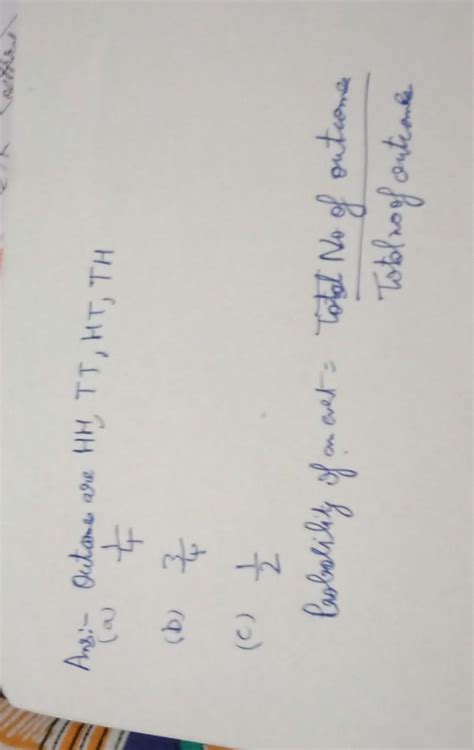 Ans:- Outcome are HH, TT, HT, TH
(a) 1/4
(b) 3/4
(c) 1/2
Probability of an evet = Total No of outcome
Total no of outcome